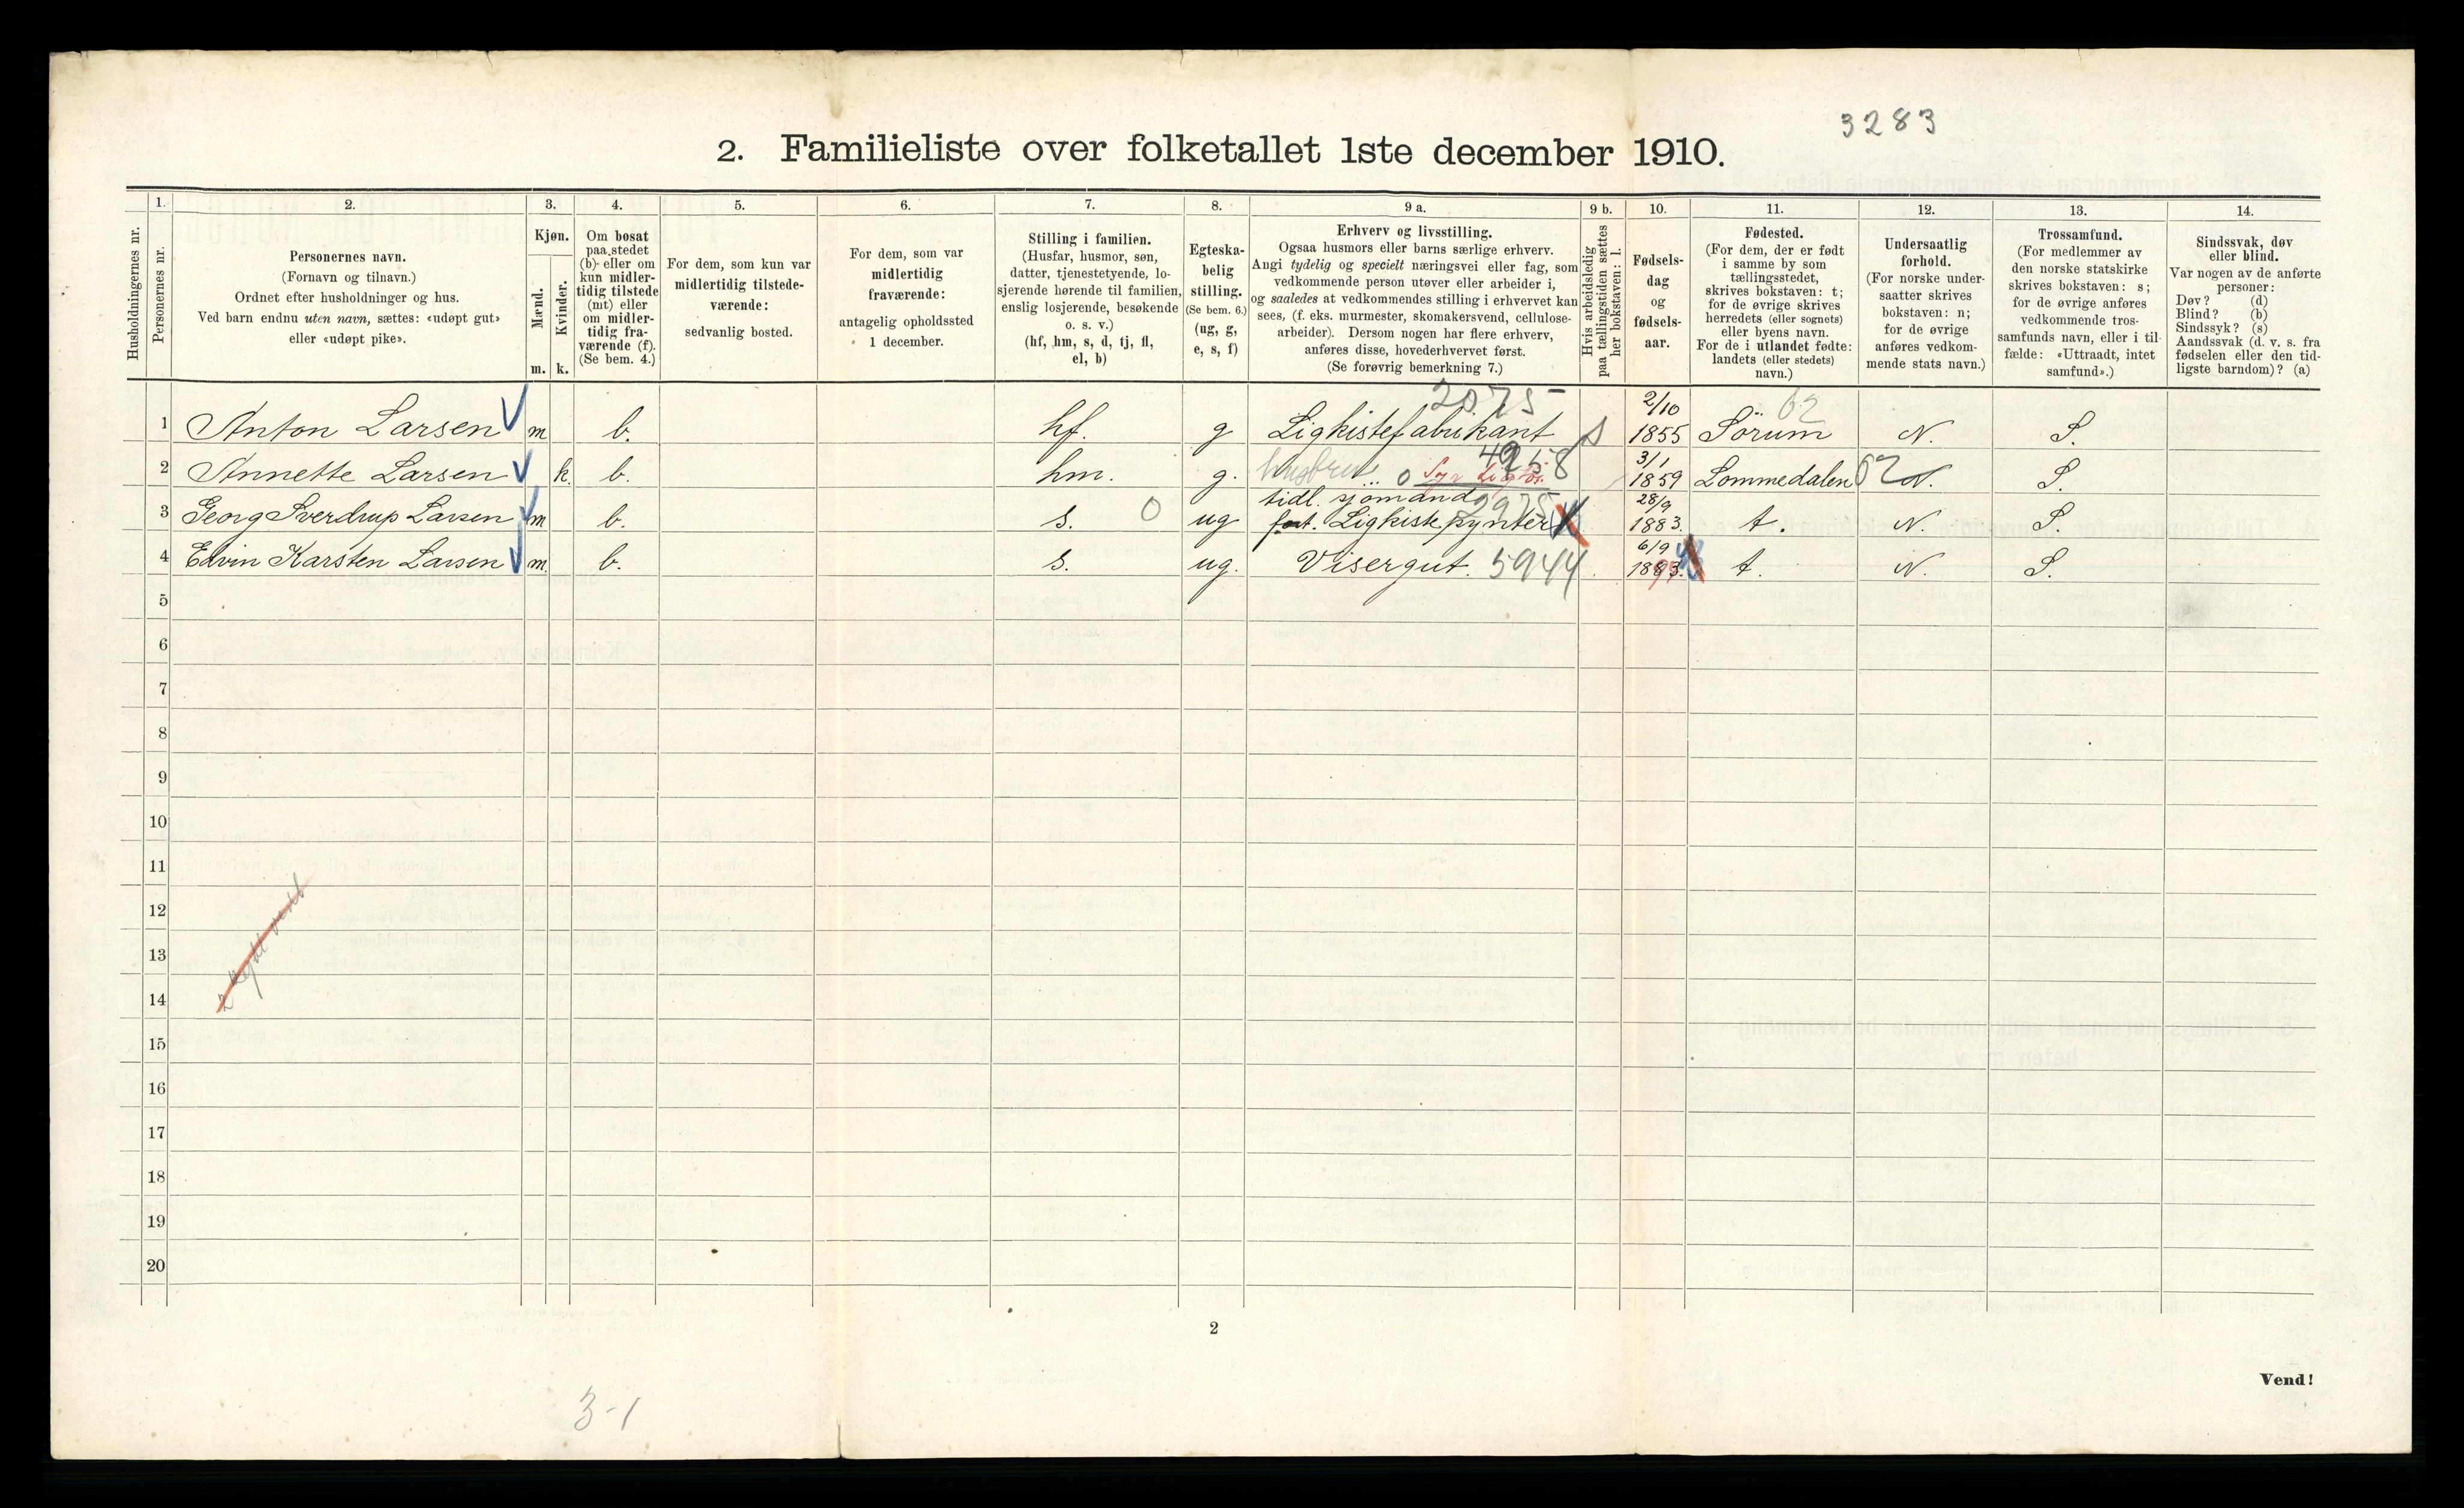 3283
2. Familieliste over folketallet 1ste december 1910.
Husholdningernes nr.
1.
Personernes nr.
2.
Personernes navn.
(Fornavn og tilnavn.)
Ordnet efter husholdninger og hus.
Ved barn endnu uten navn, sættes: «udøpt gut»
eller «udøpt pike».
3.
Kjøn.
Mænd.
Kvinder.
m. k.
4.
Om bosat
paa stedet
(b) eller om
kun midler-
tidig tilstede
(mt) eller
om midler-
tidig fra-
værende (f).
(Se bem. 4.)
5.
For dem, som kun var
midlertidig tilstede-
værende:
sedvanlig bosted.
6.
For dem, som var
midlertidig
fraværende:
antagelig opholdssted
1 december.
7.
Stilling i familien.
(Husfar, husmor, søn,
datter, tjenestetyende, lo-
sjerende hørende til familien,
enslig losjerende, besøkende
o. s. v.)
(hf, hm, s, d, tj, fl,
el, b)
8.
Egteska-
belig
stilling.
(Se bem. 6.)
(ug, g,
e, s, f)
9 a.
Erhverv og livsstilling.
Ogsaa husmors eller barns særlige erhverv.
Angi tydelig og specielt næringsvei eller fag, som
vedkommende person utøver eller arbeider i,
og saaledes at vedkommendes stilling i erhvervet kan
sees, (f. eks. murmester, skomakersvend, cellulose-
arbeider). Dersom nogen har flere erhverv,
anføres disse, hovederhvervet først.
(Se forøvrig bemerkning 7.)
9 b.
Hvis arbeidsledig
paa tællingstiden sættes
her bokstaven: l.
10.
Fødsels-
dag
og
fødsels-
aar.
11.
Fødested.
(For dem, der er født
i samme by som
tællingsstedet,
skrives bokstaven: t;
for de øvrige skrives
herredets (eller sognets)
eller byens navn.
For de i utlandet fødte:
landets (eller stedets)
navn.)
12.
Undersaatlig
forhold.
(For norske under-
saatter skrives
bokstaven: n;
for de øvrige
anføres vedkom-
mende stats navn.)
13.
Trossamfund.
(For medlemmer av
den norske statskirke
skrives bokstaven: s;
for de øvrige anføres
vedkommende tros-
samfunds navn, eller i til-
fælde: «Uttraadt, intet
samfund».)
14.
Sindssvak, døv
eller blind.
Var nogen av de anførte
personer:
Døv? (d)
Blind? (b)
Sindssyk? (s)
Aandssvak (d. v. s. fra
fødselen eller den tid-
ligste barndom)? (a)
2075 2/10 62
1 Anton Larsen m b. hf. g Ligkistefabrikant s 1855 Sörum N. S.
4258 3/1
2 Annette Larsen k. b. hm. g. 0 1859 Lommedalen 62 N. S.
tidl. sjömand 2975 28/9
3 Georg Sverdrup Larsen m b. s. 0 ug Ligkistepynter 1883. t. N. S.
6/9
4 Edvin Karsten Larsen m. b. s. ug. Visergut. 5944 t. N. S.
5
6
7
8
9
10
11
12
13
14
15
16
17
18
19
20
2
Vend!
3-1